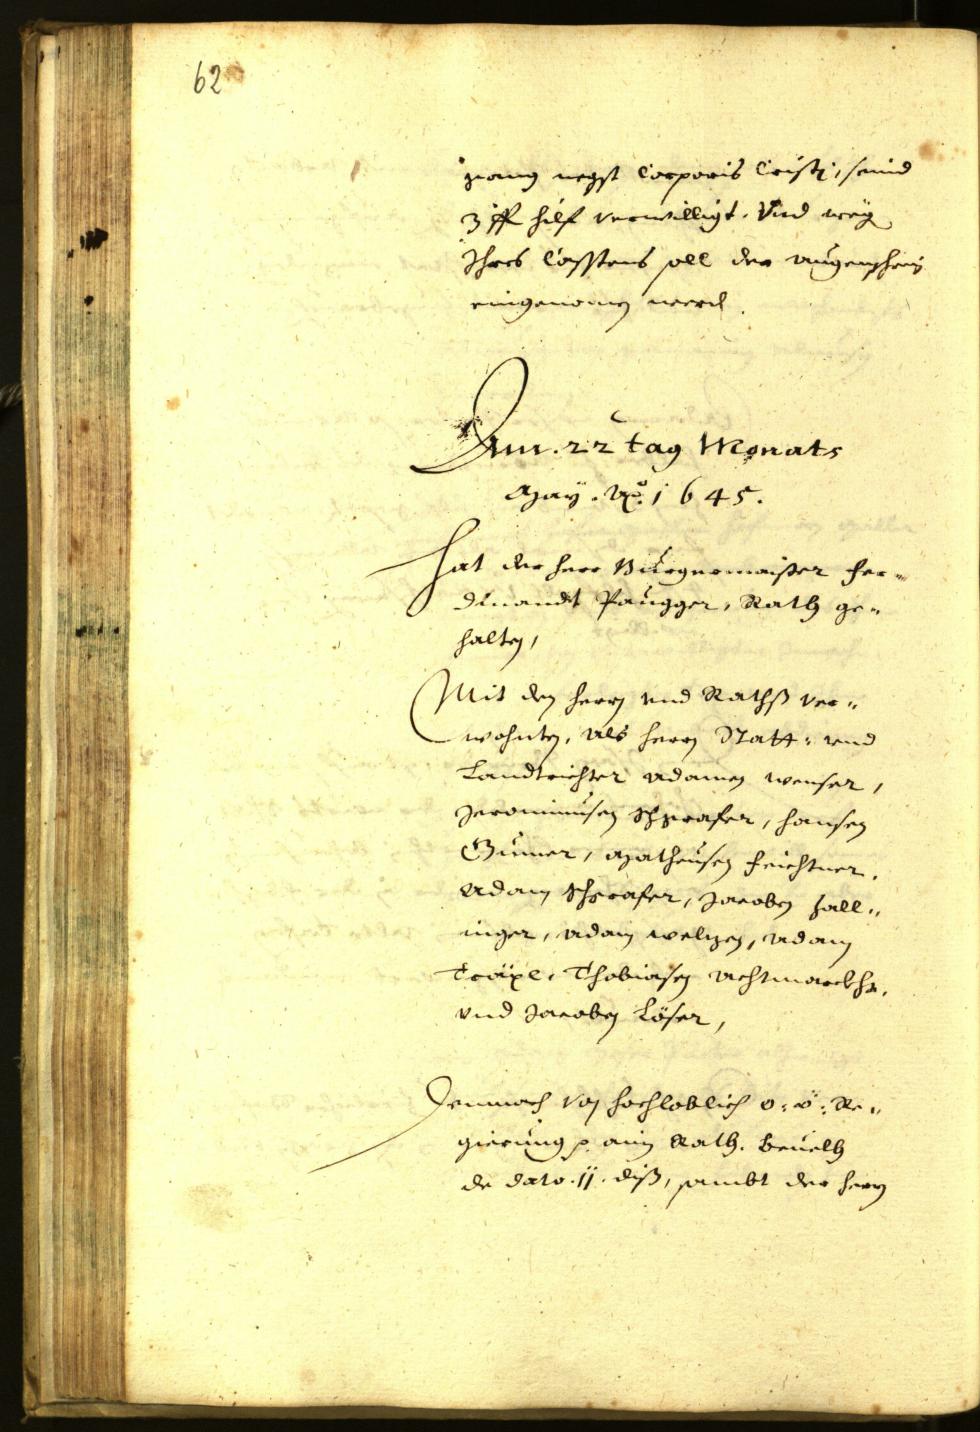 62
gang negst Corporis Cristi, seind
3 ff hilf verwilligt. Und weg
Ihres Casstens soll der augenschein
eingenomen werd.
Am. 22 tag Monats
May. Ao. 1645.
Hat der herr Burgermaister Fer=
dinandt Paugger, Rath ge=
halten,
Mit den herrn und Rathß ver=
wohnten, als herrn Statt= und
Landtrichter Adamen Wenser,
Jeronimusen Schgrafer, Hansen
Gumer, Matheusen Feichtner,
Adam Schgrafer, Jacoben Hall=
inger, Adam Welzen, Adam
Träxl, Thobiasen Achtmarckht,
und Jacoben Löser,
Demnach von hochloblich o: ö: Re=
gierung p. ain Rath. bevelh
de dato. 11. diß, sambt der herrn